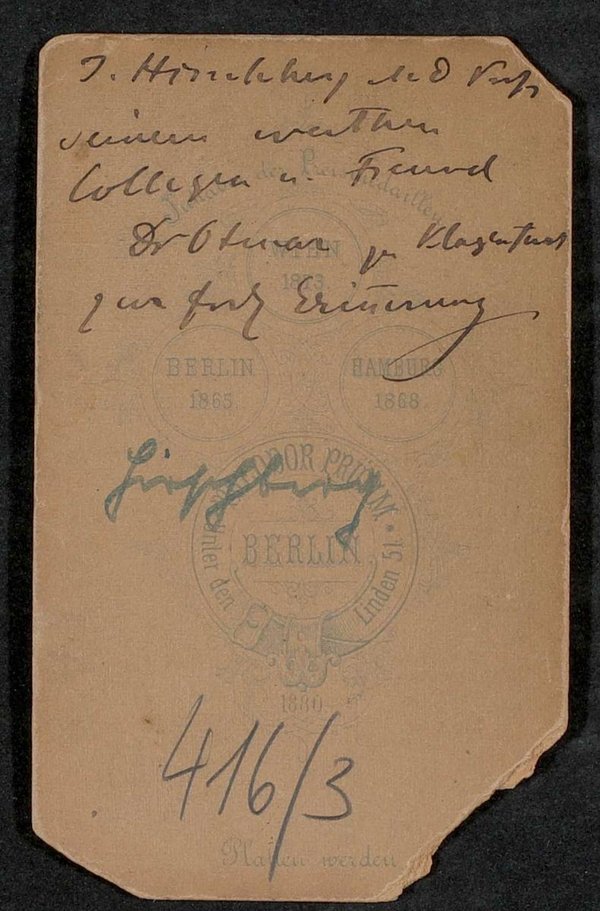 J. Hirschberg M D Prof
seinem werthen
Collegen u. Freund
Dr Otmar zu Klagenfurt
zur frdl Erinnerung
Medaillen
WIEN
1873
BERLIN
1865.
HAMBURG
1868.
Hirschberg
THEODOR PRÜMM
Unter den Linden 51
BERLIN.
1880
416/3
Platten werden